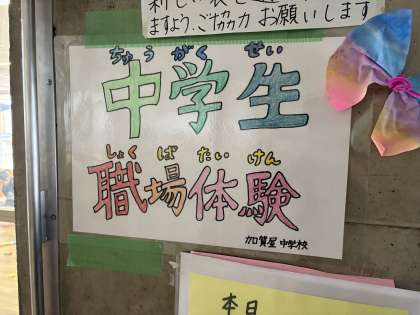 ますよう、ご協力 お願いします
ちゅう がく せい
中学生
しょく ば たい けん
職場体験
加賀屋 中学校
本日